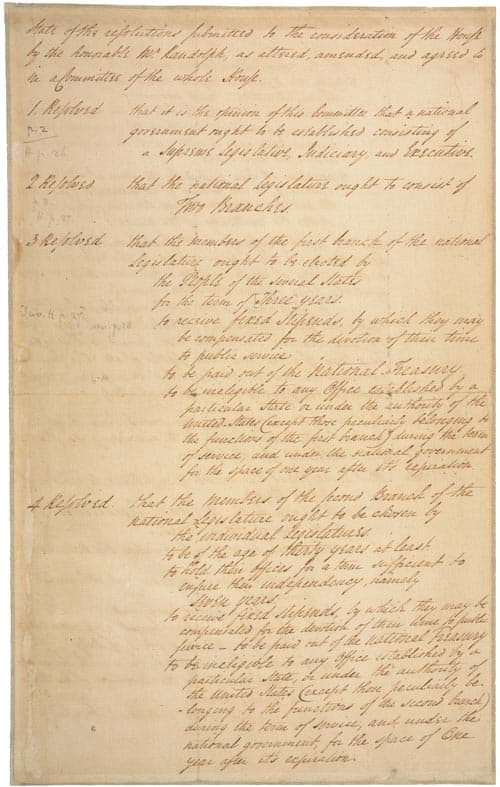 State of the resolutions submitted to the consideration of the House
by the honorable Mr. Randolph, as altered, amended, and agreed to
in a Committee of the whole House.
1. Resolved that it is the opinion of this Committee that a national
p. 2 government ought to be established consisting of
a Supreme Legislative, Judiciary, and Executive.
2 Resolved that the national Legislature ought to consist of
Two Branches.
3 Resolved that the Members of the first branch of the national
Legislature ought to be elected by
the People of the several States
for the term of Three years.
to receive fixed stipends, by which they may
be compensated for the devotion of their time
to public service
to be paid out of the National-Treasury.
to be ineligible to any Office established by a
particular State or under the authority of the
United States (except those peculiarly belonging to
the functions of the first branch) during the term
of service, and under the national government
for the space of one year after its expiration.
4 Resolved. that the Members of the second Branch of the
national Legislature ought to be chosen by
the individual Legislatures.
to be of the age of thirty years at least.
to hold their offices for a term sufficient to
ensure their independency, namely
seven years.
to receive fixed stipends, by which they may be
compensated for the devotion of their time to public
service — to be paid out of the National Treasury
to be ineligible to any Office established by a
particular State, or under the authority of
the United States (except those peculiarly be-
-longing to the functions of the second branch)
during the term of service, and under the
national government, for the space of One
year after its expiration.